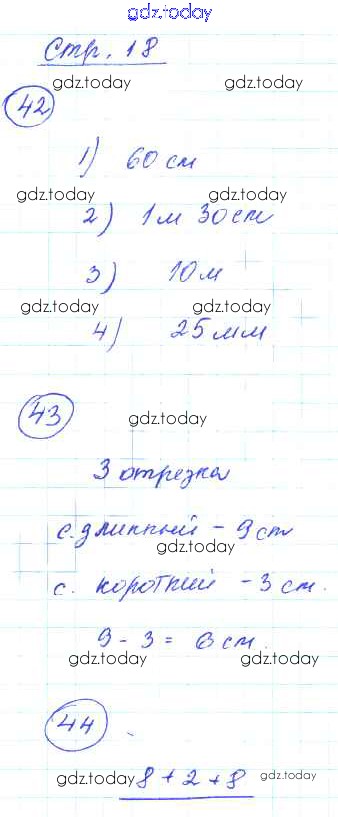 gdz.today
Стр. 18
gdz.today gdz.today
42
1) 60 см
gdz.today gdz.today
2) 1 м 30 см
3) 10 м
gdz.today gdz.today
4) 25 мм
43 gdz.today
3 отрезка
с. длинный - 9 см
gdz.today
с. короткий - 3 см.
9 - 3 = 6 см.
gdz.today gdz.today
44
gdz.today 8 + 2 + 8 gdz.today